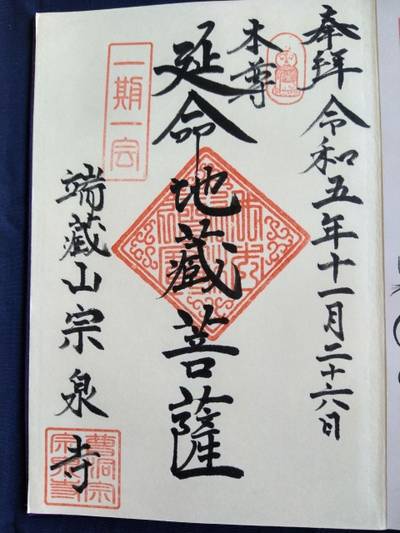 奉拝 令和五年十一月二十六日
本尊
延命地蔵菩薩
一期一会
端蔵山宗泉寺
曹洞宗
宗泉寺